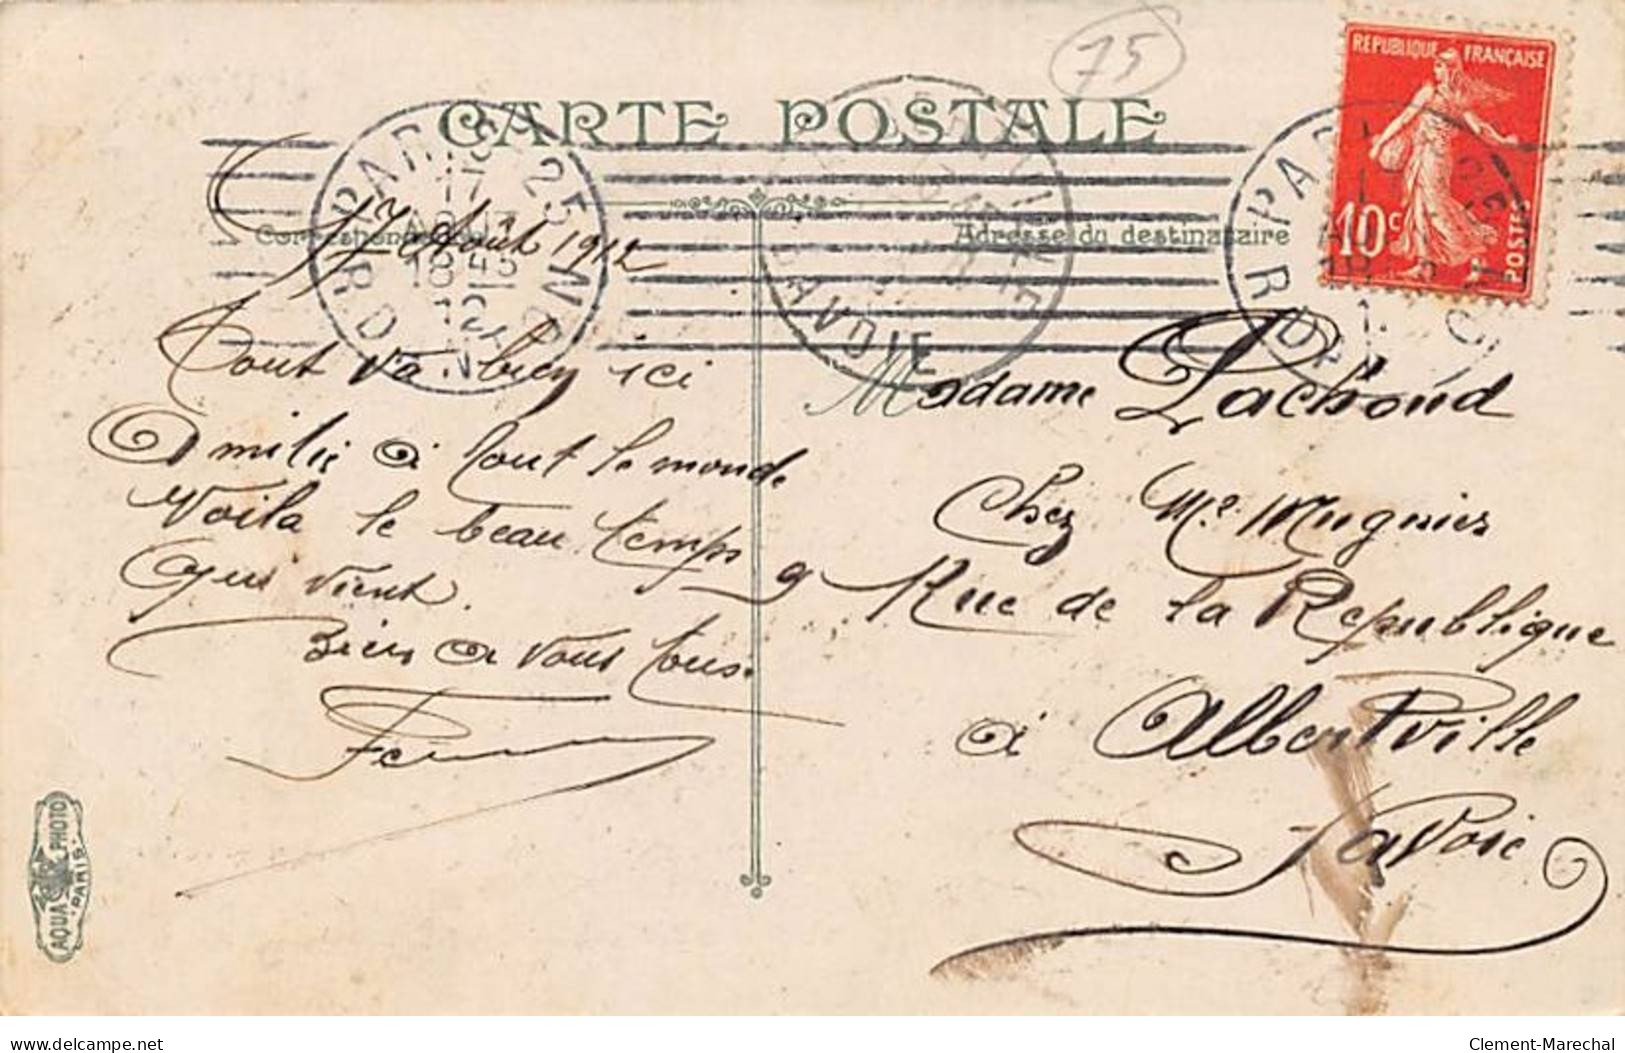 75
CARTE POSTALE
REPUBLIQUE FRANÇAISE
10c
POSTES
PARIS 25
17
AOUT
18 45
12
SAVOIE
PARIS
Correspondance
Adresse du destinataire
17 Août 1912
Tout va bien ici
Amitié à tout le monde
Voilà le beau temps
qui vient.
Bien à vous tous.
Madame Lachoud
Chez Me Mugnier
9 Rue de la Republique
à Albertville
Savoie
AQUA PHOTO
PARIS
delcampe.net
Clement-Marechal